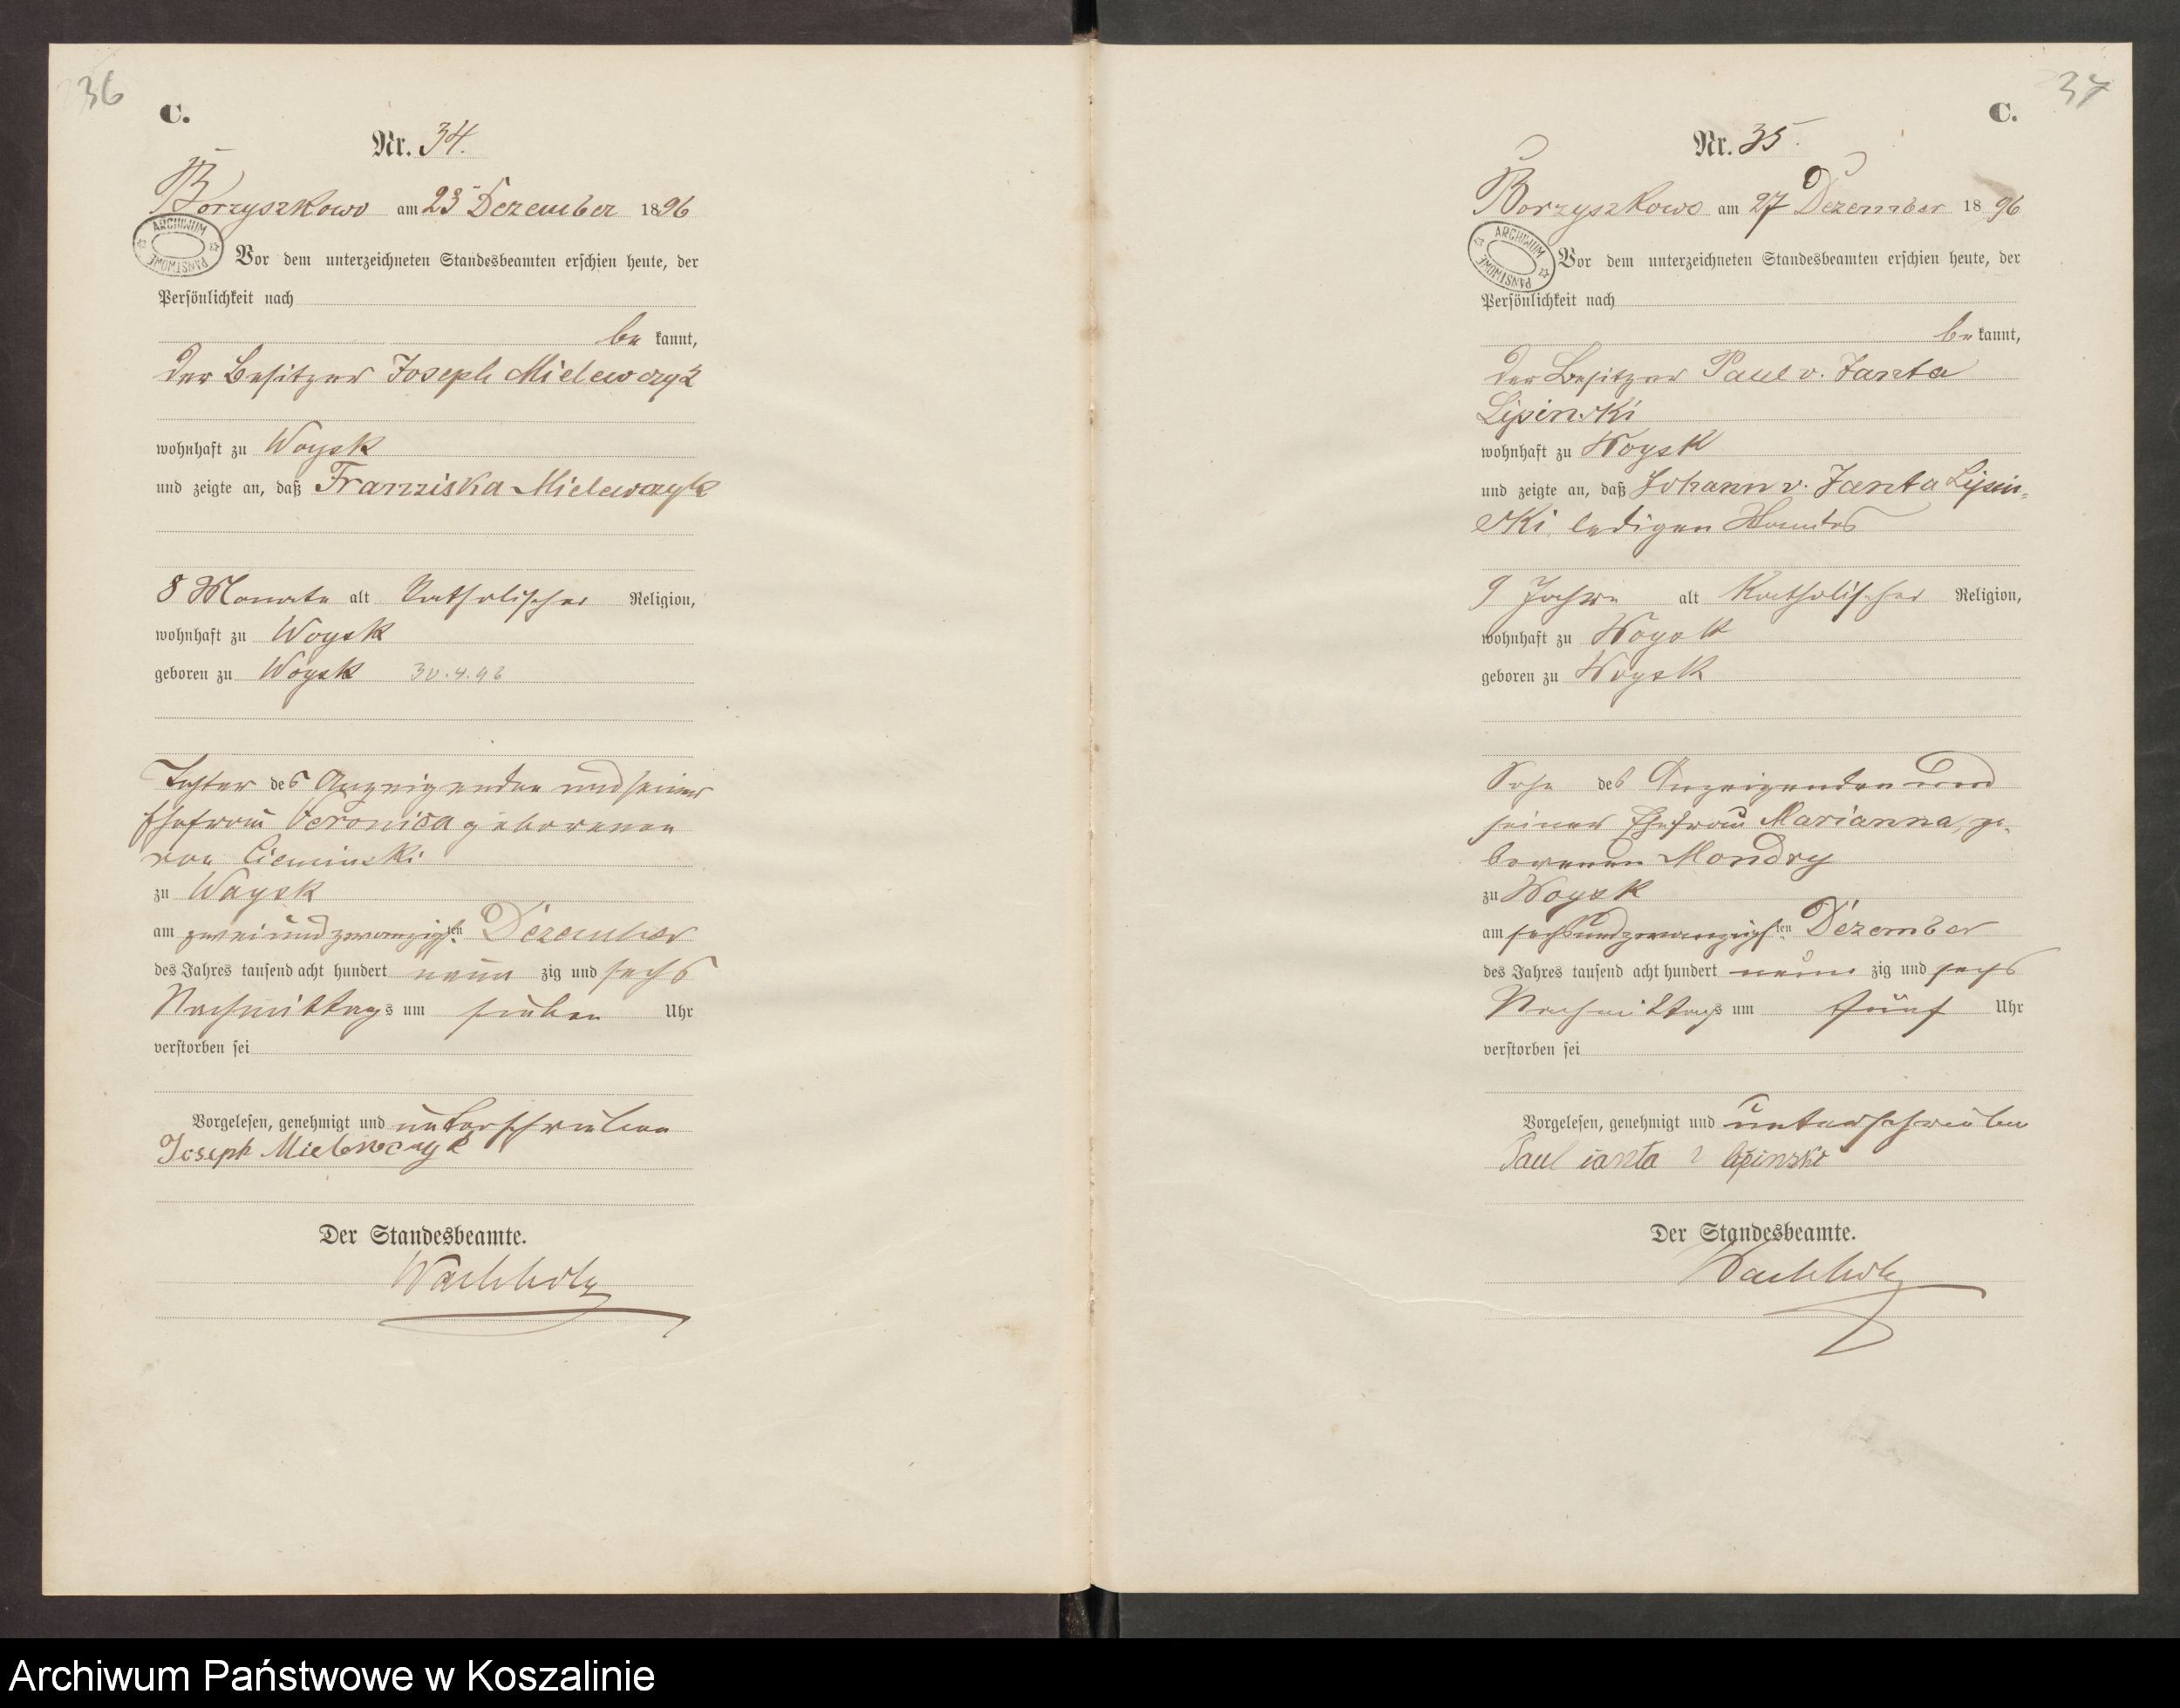 36
C.
Nr. 34.
Borzyszkowo am 23 Dezember 1896
ARCHIWUM PAŃSTWOWE
Vor dem unterzeichneten Standesbeamten erschien heute, der
Persönlichkeit nach
be kannt,
der Besitzer Joseph Mielewczyk
wohnhaft zu Woysk
und zeigte an, daß Franziska Mielewczyk
8 Monate alt Katholischer Religion,
wohnhaft zu Woysk
geboren zu Woysk 30.4.96
Tochter des Anzeigenden und seiner
Ehefrau Veronica geborenen
von Cieminski
zu Woysk
am zweiundzwanzigsten Dezember
des Jahres tausend acht hundert neun zig und sechs
Nachmittags um sieben Uhr
verstorben sei
Vorgelesen, genehmigt und unterschrieben
Joseph Mielewczyk
Der Standesbeamte.
Wachholz
37
C.
Nr. 35.
Borzyszkowo am 27 Dezember 1896
ARCHIWUM PAŃSTWOWE
Vor dem unterzeichneten Standesbeamten erschien heute, der
Persönlichkeit nach
be kannt,
der Besitzer Paul v. Janta
Lipinski
wohnhaft zu Woysk
und zeigte an, daß Johann v. Janta Lipin-
ski, ledigen Standes
9 Jahre alt Katholischer Religion,
wohnhaft zu Woysk
geboren zu Woysk
Sohn des Anzeigenden und
seiner Ehefrau Marianna, ge-
borenen Mondry
zu Woysk
am sechsundzwanzigsten Dezember
des Jahres tausend acht hundert neun zig und sechs
Nachmittags um fünf Uhr
verstorben sei
Vorgelesen, genehmigt und unterschrieben
Paul ianta lipinski
Der Standesbeamte.
Wachholz
Archiwum Państwowe w Koszalinie